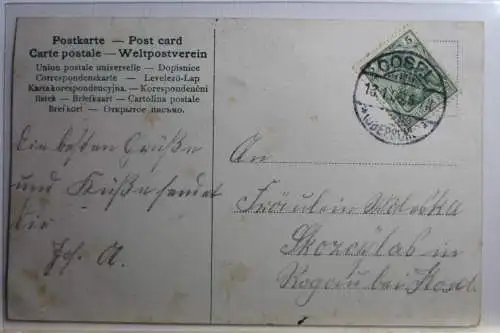 Postkarte — Post card
Carte postale — Weltpostverein
Union postale universelle — Dopisnice
Correspondenskarte — Levelező-Lap
Kartakorespondencyjna. — Korespondenční
listek — Briefkaart — Cartolina postale
Brefkort — Открытое письмо.
COSEL
Die besten Grüße
und Küße sendet
Dir
Joh. A.
An
Fräulein
in
bei Kosel